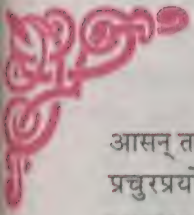 आसन् त
प्रचुरप्रयो